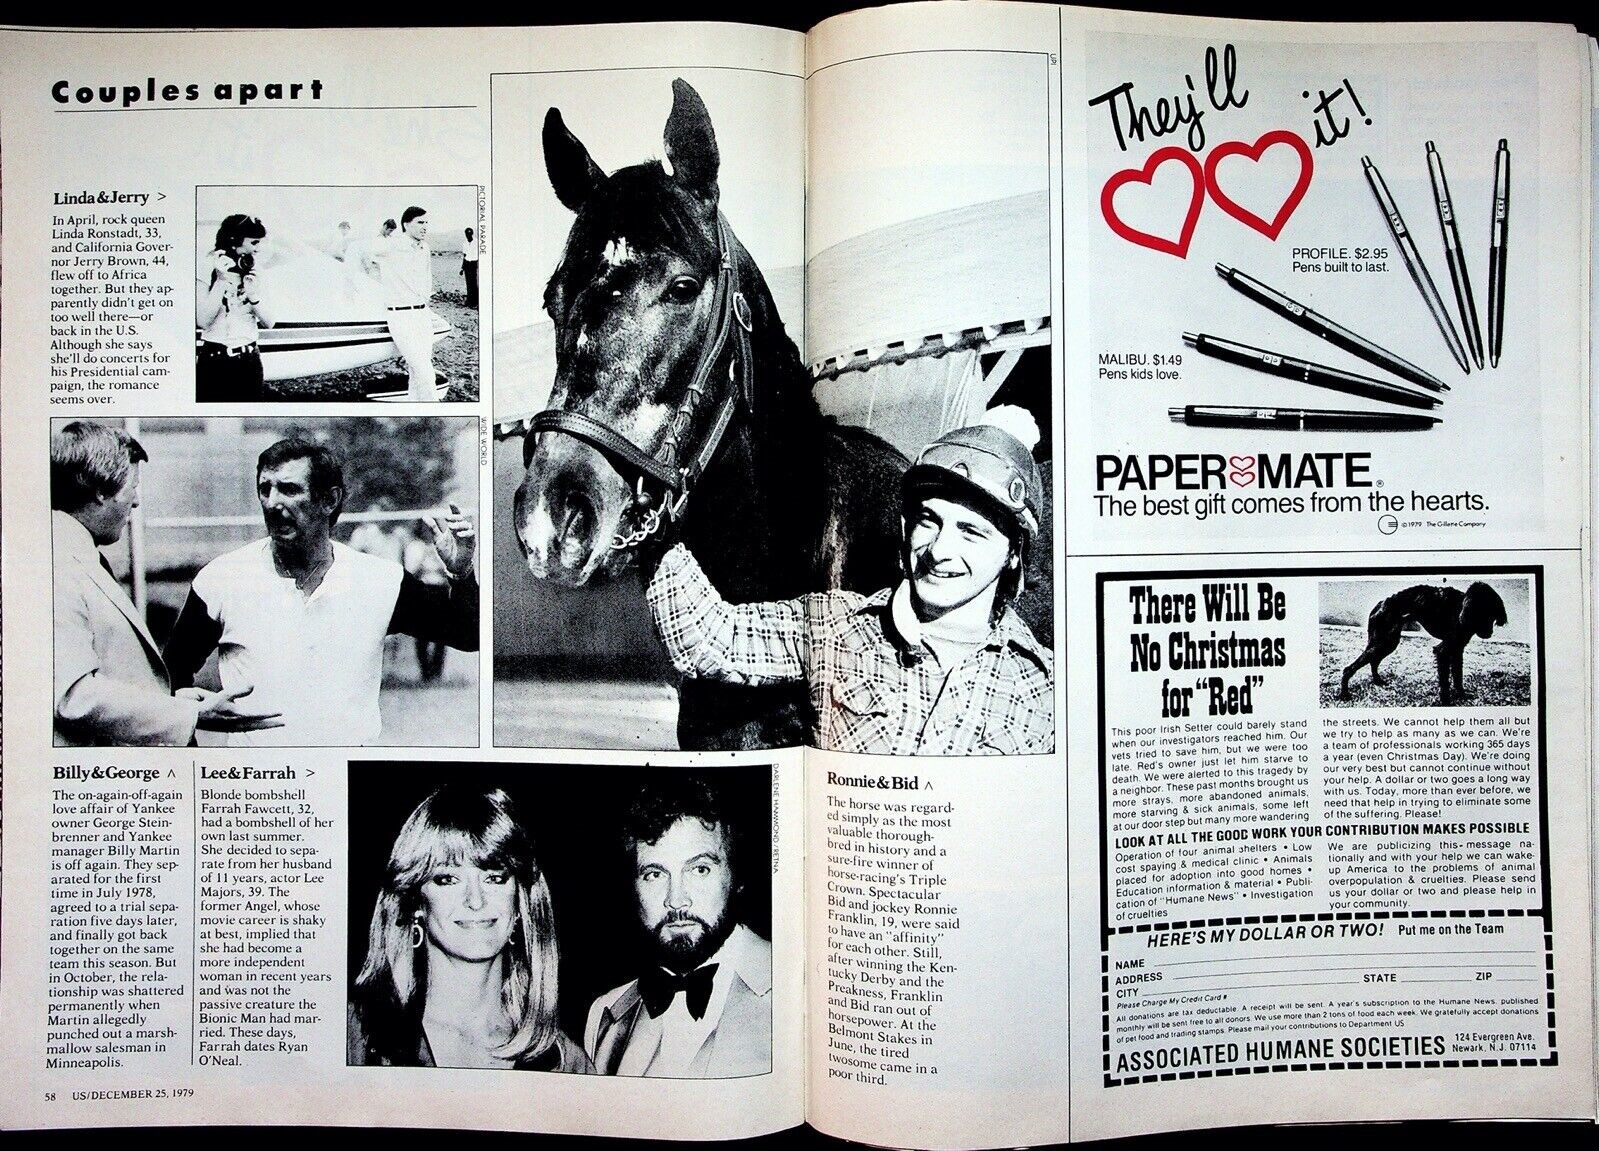 Couples apart
Linda&Jerry >
In April, rock queen
Linda Ronstadt, 33,
and California Gover-
nor Jerry Brown, 44,
flew off to Africa
together. But they ap-
parently didn't get on
too well there—or
back in the U.S.
Although she says
she'll do concerts for
his Presidential cam-
paign, the romance
seems over.
PICTORIAL PARADE
WIDE WORLD
Billy&George ^
The on-again-off-again
love affair of Yankee
owner George Stein-
brenner and Yankee
manager Billy Martin
is off again. They sep-
arated for the first
time in July 1978,
agreed to a trial sepa-
ration five days later,
and finally got back
together on the same
team this season. But
in October, the rela-
tionship was shattered
permanently when
Martin allegedly
punched out a marsh-
mallow salesman in
Minneapolis.
Lee&Farrah >
Blonde bombshell
Farrah Fawcett, 32,
had a bombshell of her
own last summer.
She decided to sepa-
rate from her husband
of 11 years, actor Lee
Majors, 39. The
former Angel, whose
movie career is shaky
at best, implied that
she had become a
more independent
woman in recent years
and was not the
passive creature the
Bionic Man had mar-
ried. These days,
Farrah dates Ryan
O'Neal.
DARLENE HAMMOND / RETNA
58 US/DECEMBER 25, 1979
UPI
Ronnie&Bid ^
The horse was regard-
ed simply as the most
valuable thorough-
bred in history and a
sure-fire winner of
horse-racing's Triple
Crown. Spectacular
Bid and jockey Ronnie
Franklin, 19, were said
to have an "affinity"
for each other. Still,
after winning the Ken-
tucky Derby and the
Preakness, Franklin
and Bid ran out of
horsepower. At the
Belmont Stakes in
June, the tired
twosome came in a
poor third.
They'll
it!
PROFILE. $2.95
Pens built to last.
MALIBU. $1.49
Pens kids love.
PAPER MATE®
The best gift comes from the hearts.
©1979 The Gillette Company
There Will Be
No Christmas
for "Red"
This poor Irish Setter could barely stand
when our investigators reached him. Our
vets tried to save him, but we were too
late. Red's owner just let him starve to
death. We were alerted to this tragedy by
a neighbor. These past months brought us
more strays, more abandoned animals,
more starving & sick animals, some left
at our door step but many more wandering
the streets. We cannot help them all but
we try to help as many as we can. We're
a team of professionals working 365 days
a year (even Christmas Day). We're doing
our very best but cannot continue without
your help. A dollar or two goes a long way
with us. Today, more than ever before, we
need that help in trying to eliminate some
of the suffering. Please!
LOOK AT ALL THE GOOD WORK YOUR CONTRIBUTION MAKES POSSIBLE
Operation of four animal shelters • Low
cost spaying & medical clinic • Animals
placed for adoption into good homes •
Education information & material • Publi-
cation of "Humane News" • Investigation
of cruelties
We are publicizing this message na-
tionally and with your help we can wake-
up America to the problems of animal
overpopulation & cruelties. Please send
us your dollar or two and please help in
your community.
HERE'S MY DOLLAR OR TWO! Put me on the Team
NAME
ADDRESS
CITY STATE ZIP
Please Charge My Credit Card #
All donations are tax deductable. A receipt will be sent. A year's subscription to the Humane News, published
monthly will be sent free to all donors. We use more than 2 tons of food each week. We gratefully accept donations
of pet food and trading stamps. Please mail your contributions to Department US
ASSOCIATED HUMANE SOCIETIES 124 Evergreen Ave.
Newark, N.J. 07114